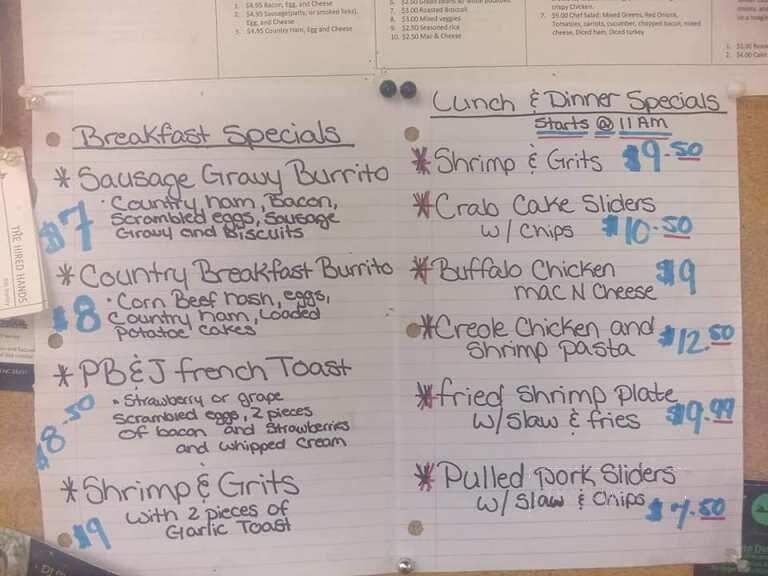 1. $4.95 Bacon, Egg, and Cheese
2. $4.95 Sausage(patty, or smoked links), Egg, and Cheese
3. $4.95 Country Ham, Egg and Cheese
7. $3.00 Roasted Broccoli
8. $3.00 Mixed veggies
9. $2.50 Seasoned rice
10. $2.50 Mac & Cheese
crispy Chicken.
7. $9.00 Chef Salad: Mixed Greens, Red Onions,
Tomatoes, carrots, cucumber, chopped bacon, mixed
cheese, Diced ham, Diced turkey
THE HIRED HANDS
Breakfast Specials
* Sausage Gravy Burrito
$7
• Country ham, Bacon,
Scrambled eggs, Sausage
Gravy and Biscuits
* Country Breakfast Burrito
$8
• Corn Beef hash, eggs,
Country ham, Loaded
Potatoe cakes
* PB&J french Toast
$8.50
• Strawberry or grape
scrambled eggs, 2 pieces
of bacon and strawberries
and whipped cream
* Shrimp & Grits
$9
with 2 pieces of
Garlic Toast
Lunch & Dinner Specials
Starts @ 11 AM
* Shrimp & Grits $9.50
* Crab Cake Sliders
w/ Chips $10.50
* Buffalo Chicken $9
mac N Cheese
* Creole Chicken and
Shrimp pasta $12.50
* fried Shrimp plate
w/Slaw & fries $9.99
* Pulled pork Sliders
w/ Slaw & Chips $7.50